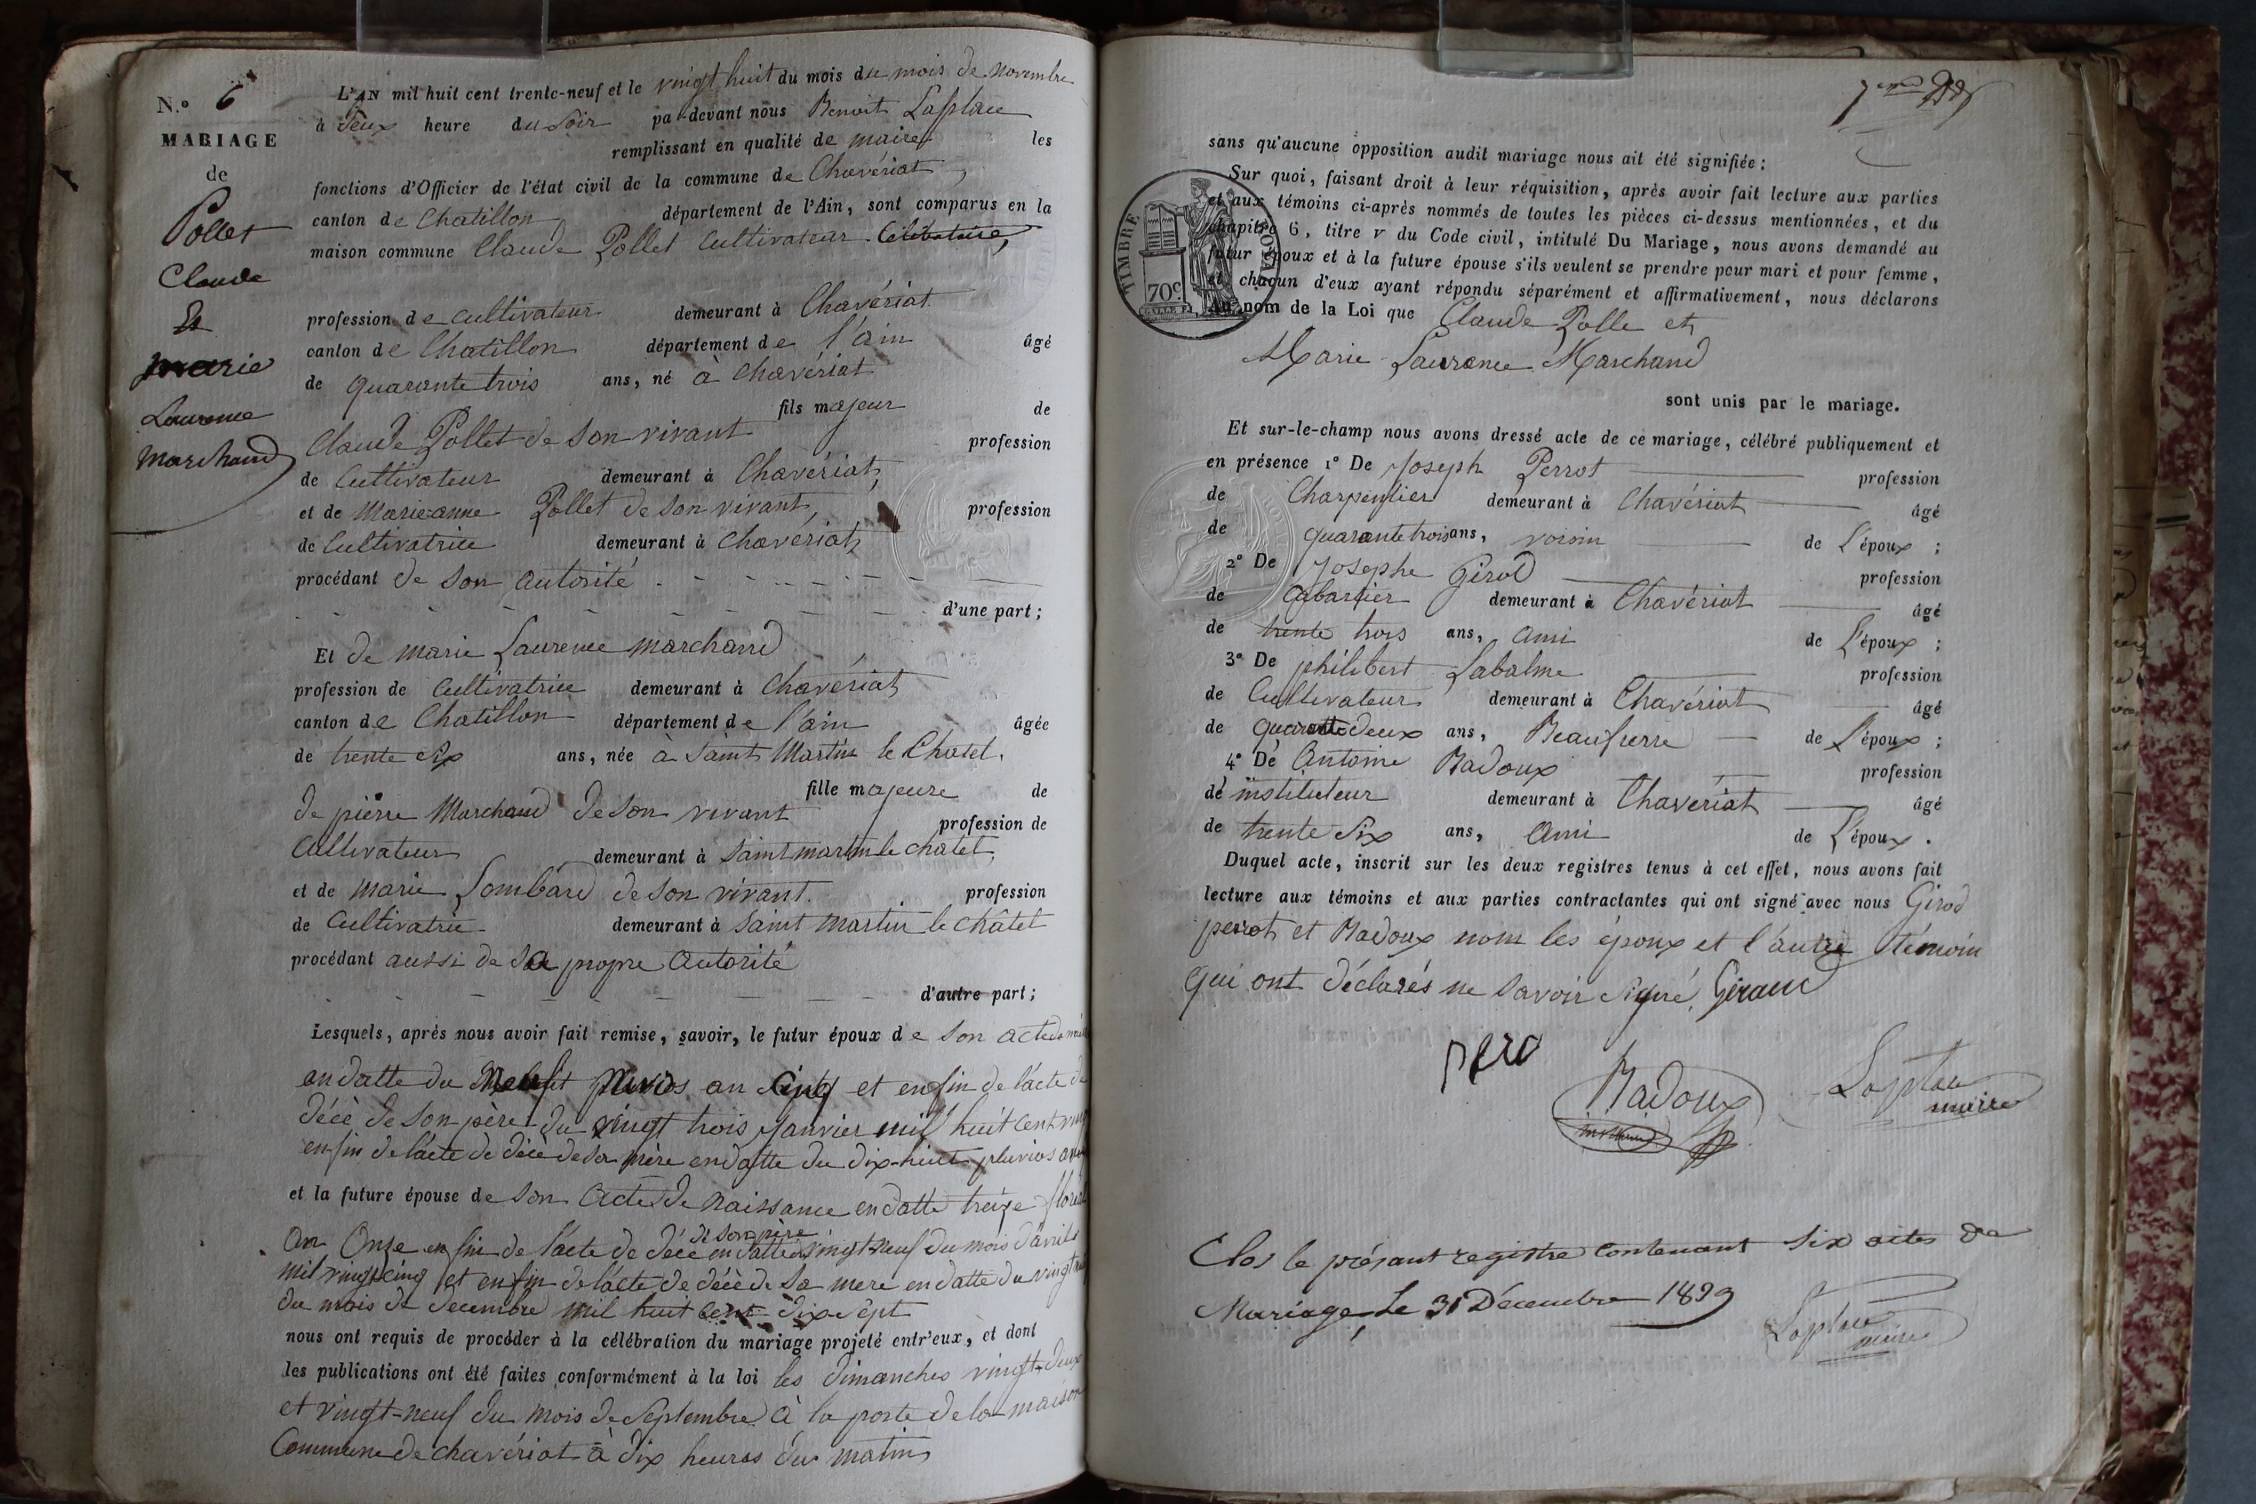 N.° 6
MARIAGE
de
Pollet
Claude
Et
marie
Laurence
Marchand
L'AN mil huit cent trente-neuf et le vingt huit du mois du mois de novembre
à deux heure du soir pa-devant nous Benoit Laplace
remplissant en qualité de maire les
fonctions d'Officier de l'état civil de la commune de Chavériat,
canton de Chatillon département de l'Ain, sont comparus en la
maison commune Claude Pollet Cultivateur Célibataire,
profession de cultivateur demeurant à Chavériat
canton de Chatillon département de l'ain âgé
de quarante trois ans, né à Chavériat
fils majeur de
Claude Pollet de son vivant profession
de Cultivateur demeurant à Chavériat,
et de Marieanne Pollet de son vivant, profession
de Cultivatrice demeurant à Chavériat,
procédant de son autorité
d'une part ;
Et de marie Laurence marchand
profession de Cultivatrice demeurant à Chavériat
canton de Chatillon département de l'ain âgée
de trente six ans, née à Saint Martin le Chatel.
fille majeure de
de pierre Marchand de son vivant profession de
Cultivateur demeurant à saint martin le chatel,
et de marie Lombard de son vivant. profession
de Cultivatrice demeurant à saint martin le châtel
procédant aussi de sa propre autorité
d'autre part ;
Lesquels, après nous avoir fait remise, savoir, le futur époux de son acte de
en datte du pluvios an Cinq et enfin de l'acte de
décè de son père du vingt trois janvier mil huit cent
enfin de l'acte de décè de sa mère en datte du dix-huit pluvios
et la future épouse de son acte de naissance en datte treize floréal
an Onze enfin de l'acte de décè de son père en datte du vingt-neuf du mois d'avril
mil vingt cinq et enfin de l'acte de décè de sa mere en datte du
du mois de decembre mil huit cent dix-sept
nous ont requis de procéder à la célébration du mariage projeté entr'eux, et dont
les publications ont été faites conformément à la loi les dimanches vingt-deux
et vingt-neuf du mois de Septembre à la porte de la maison
Commune de chavériat à dix heures du matin
7eme
sans qu'aucune opposition audit mariage nous ait été signifiée :
Sur quoi, faisant droit à leur réquisition, après avoir fait lecture aux parties
et aux témoins ci-après nommés de toutes les pièces ci-dessus mentionnées, et du
chapitre 6, titre v du Code civil, intitulé Du Mariage, nous avons demandé au
futur époux et à la future épouse s'ils veulent se prendre pour mari et pour femme,
et chacun d'eux ayant répondu séparément et affirmativement, nous déclarons
au nom de la Loi que Claude Polle et
TIMBRE ROYAL
70c
Marie Laurence Marchand
sont unis par le mariage.
Et sur-le-champ nous avons dressé acte de ce mariage, célébré publiquement et
en présence 1° De Joseph Perrot profession
de Charpentier demeurant à Chavériat âgé
de quarante trois ans, voisin de L'époux ;
2° De Josephe Girod profession
de Cabartier demeurant à Chavériat âgé
de trente trois ans, ami de L'époux ;
3° De philibert Labalme profession
de Cultivateur demeurant à Chavériat âgé
de quarante deux ans, Beaufrerre de L'époux ;
4° De Antoine Badoux profession
de instituteur demeurant à Chavériat âgé
de trente Six ans, ami de L'époux .
Duquel acte, inscrit sur les deux registres tenus à cet effet, nous avons fait
lecture aux témoins et aux parties contractantes qui ont signé avec nous Girod
perrot et Badoux nom les époux et l'autre témoin
qui ont déclarés ne savoir signé. Giraud
pero
Badoux
Laplace
maire
Clos le présant registre contenant six actes de
Mariage, Le 31 Décembre 1839
Laplace
maire